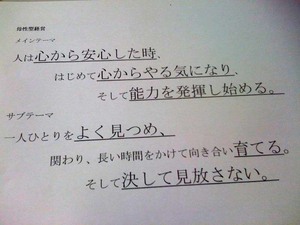 母性型経営
メインテーマ
人は心から安心した時、
はじめて心からやる気になり、
そして能力を発揮し始める。
サブテーマ
一人ひとりをよく見つめ、
関わり、長い時間をかけて向き合い育てる。
そして決して見放さない。